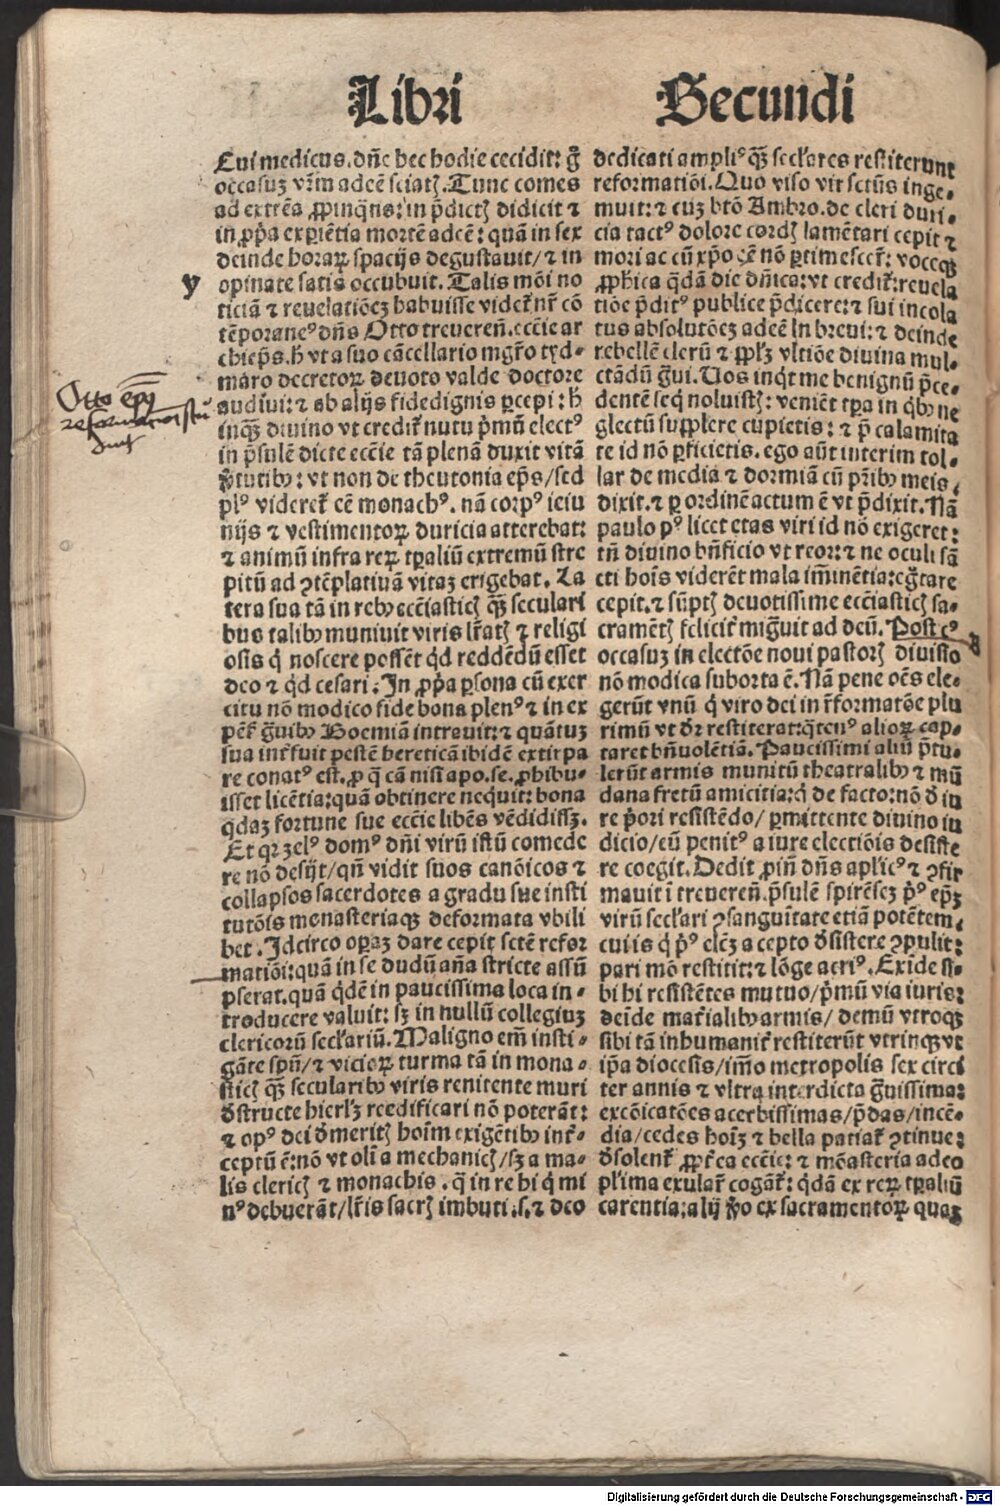 Libri Secundi
Cui medicus. dñe hec hodie cecidit: g̃
occasuʒ vr̃m adeẽ sciatꝭ. Tunc comes
ad extrẽa ꝓpinq̃ns: in p̃dictꝭ didicit ⁊
in ꝓp̃a exp̱iẽtia mortẽ adeẽ: quã in sex
deinde horaꝝ spacijs degustauit / ⁊ in
y opinate satis occubuit. Talis mõi no
ticiã ⁊ reuelatiõeʒ habuisse videt᷑ nr̃ cõ
tẽporane⁹ dñs Otto treuereñ. eccĩe ar
chiep̃s. h̃ vt a suo cãcellario mgr̃o tyd⸗
maro decretoꝝ deuoto valde doctore
Otto ep̃s
reformationi stu
duit
audiui: ⁊ ab alijs fidedignis p̱cepi: h̃
inq̃ʒ diuino vt credit᷑ nutu p̃mũ elect⁹
in p̃sulẽ dicte eccĩe tã plenã duxit vitã
v̓tutibꝰ: vt non de theutonia ep̃s / sed
pl⁹ videret᷑ eẽ monach⁹. nã corp⁹ ieiu
nijs ⁊ vestimentoꝝ duricia atterebat:
⁊ animũ infra reꝝ tp̱aliũ extremũ stre
pitũ ad ꝯtẽplatiuã vitaʒ erigebat. La
tera sua tã in rebꝰ ecclĩasticꝭ q̃ʒ seculari
bus talibꝰ muniuit viris lr̃atꝭ ⁊ religi
osis q̇ noscere possẽt q̇d reddẽdũ esset
deo ⁊ q̇d cesari. In ꝓp̃a p̱sona cũ exer
citu nõ modico fide bona plen⁹ ⁊ in ex
pẽs᷑ g̃uibꝰ Boemiã intrauit: ⁊ quãtuʒ
sua int᷑fuit pestẽ hereticã ibidẽ extirpa
re conat⁹ est. ꝓ q̃ cã nisi apo. se. ꝓhibu⸗
isset licẽtia: quã obtinere neq̇uit: bona
q̇daʒ fortune sue eccĩe libẽs vẽdidissʒ.
Et qꝛ zel⁹ dom⁹ dñi virũ istũ comede
re nõ desijt / qñ vidit suos canõicos ⁊
collapsos sacerdotes a gradu sue insti
tutõis monasteriaqʒ deformata vbili
bet. Idcirco op̱aʒ dare cepit sctẽ refor
matiõi: quã in se dudũ aña stricte assũ
p̱serat. quã q̇dẽ in paucissima loca in⸗
troducere valuit: sʒ in nullũ collegiuʒ
clericorũ secĺariũ. Maligno em̃ insti⸗
gãte spũ / ⁊ vicioꝝ turma tã in mona⸗
sticꝭ q̃ʒ secularibꝰ viris renitente muri
d̓structe hierlʒ reedificari nõ poterãt:
⁊ op⁹ dei d̓meritꝭ hoĩm exigẽtibꝰ int᷑⸗
ceptũ ẽ: nõ vt oli᷑ a mechanicꝭ / sʒ a ma⸗
lis clericꝭ ⁊ monachis. q̃ in re hi q̇ mi
n⁹ debuerãt / lr̃is sacrꝭ imbuti. s. ⁊ deo
dedicati ampli⁹ q̃ʒ secĺares restiterunt
reformatiõi. Quo viso vir sctũs inge⸗
muit: ⁊ cuʒ btõ Ambro. de cleri duri⸗
cia tact⁹ dolore cordꝭ lamẽtari cepit ⁊
mori ac cũ xp̃o eẽ nõ p̱timescer̃: voceqʒ
ꝓphica q̇dã die dñica: vt credit᷑: reuela
tiõe p̃dit⁹ publice p̃dicere: ⁊ sui incola
tus absolutõeʒ adeẽ in breui: ⁊ deinde
rebellẽ clerũ ⁊ ꝓpl̃ʒ vltiõe diuina mul⸗
ctãdũ g̃ui. Uos inq̇t me benignũ p̃ce⸗
dentẽ seq̇ noluistꝭ: veniẽt tp̱a in q̇bꝰ ne
glectũ supplere cupietis: ⁊ p̃ calamita
te id nõ p̱ficietis. ego aũt interim tol⸗
lar de media ⁊ dormiã cũ pr̃ibꝰ meis,
dixit. ⁊ p̱ ordinẽ actum ẽ vt p̃dixit. Nã
paulo p⁹ licet etas viri id nõ exigeret:
tñ diuino bñficio vt reor: ⁊ ne oculi sã
cti hoĩs viderẽt mala im̃inẽtia: eg̃tare
cepit. ⁊ sũptꝭ deuotissime ecclĩasticꝭ sa⸗
cramẽtꝭ felicit᷑ mig̃uit ad deũ. Post e⁹
occasuʒ in electõe noui pastorꝭ diuisio
nõ modica suborta ẽ. Nã pene oẽs ele⸗
gerũt vnũ q̇ viro dei in r̃formatõe plu
rimũ vt dr̃ restiterat: q̃ten⁹ alioꝝ cap⸗
taret bñuolẽtiã. Paucissimi aliũ p̃tu⸗
lerũt armis munitũ theatralibꝰ ⁊ mũ
dana fretũ amicitia: q̇ de facto: nõ d̓ iu
re p̃ori resistẽdo / p̱mittente diuino iu
dicio / eũ penit⁹ a iure electiõis desiste
re coegit. Dedit ꝓiñ dñs apl̃ic⁹ ⁊ ꝯfir
mauit i᷑ treuereñ. p̃sulẽ spirẽseʒ p̓⁹ ep̃ʒ
virũ secĺari ꝯsanguĩtate etiã potẽtem,
cui⁹ q̇ p̓⁹ elẽʒ a cepto d̓sistere ꝯpulit:
pari mõ restitit: ⁊ lõge acri⁹. Exĩde si⸗
bi hi resistẽtes mutuo / p̃mũ via iuris:
deĩde mat᷑ialibꝰ armis / demũ vtroqʒ
sibi tã inhumanit᷑ restiterũt vtrinqʒ vt
ip̃a diocesis / im̃o metropolis sex circi
ter annis ⁊ vltra interdicta g̃uissima:
excõicatões acerbissimas / p̃das / incẽ⸗
dia / cedes hoĩʒ ⁊ bella patiat᷑ ꝯtinue:
d̓solent᷑ ꝓpt᷑ea eccĩe: ⁊ mõasteria adeo
pl̃ima exular̃ cogãt᷑: q̇dã ex reꝝ tp̱aliũ
carentia: alij v̓o ex sacramentoꝝ quaʒ